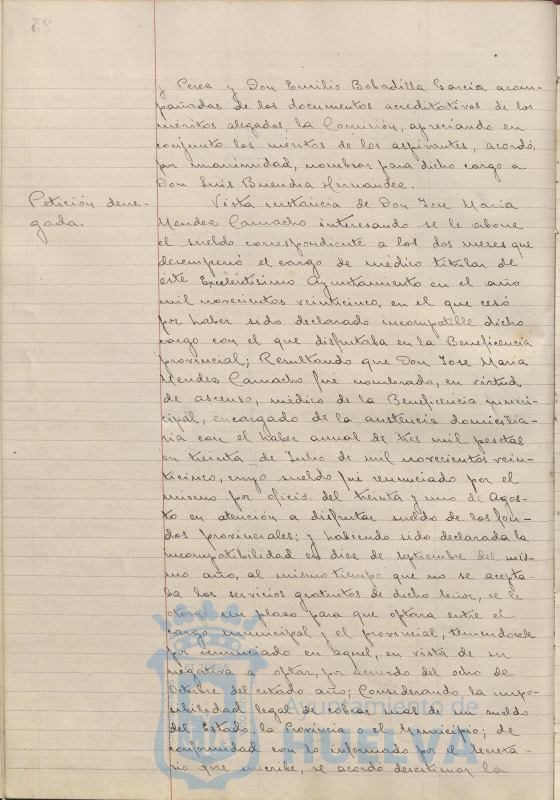 y Perea y Don Emilio Bobadilla Garcia acom-
pañadas de los documentos acreditativos de los
méritos alegados, la Comisión, apreciando en
conjunto los méritos de los aspirantes, acordó,
por unanimidad, nombrar para dicho cargo a
Don Luis Buendia Hernandez.
Petición dene-
gada.
Vista instancia de Don Jose Maria
Mendez Camacho interesando se le abone
el sueldo correspondiente a los dos meses que
desempeñó el cargo de médico titular de
éste Excelentisimo Ayuntamiento en el año
mil novecientos veinticinco, en el que cesó
por haber sido declarado incompatible dicho
cargo con el que disfrutaba en la Beneficencia
provincial; Resultando que Don Jose Maria
Mendez Camacho fué nombrado, en virtud
de ascenso, médico de la Beneficencia muni-
cipal, encargado de la asistencia domicilia-
ria con el haber anual de tres mil pesetas
en treinta de Julio de mil novecientos vein-
ticinco, cuyo sueldo fué renunciado por el
mismo por oficio del treinta y uno de Agos-
to en atención a disfrutar sueldo de los fon-
dos provinciales; y habiendo sido declarada la
incompatibilidad en diez de septiembre del mis-
mo año, al mismo tiempo que no se acepta-
ba los servicios gratuitos de dicho señor, se le
otorgó un plazo para que optara entre el
cargo municipal y el provincial, teniendosele
por renunciado en aquel, en vista de su
negativa a optar, por acuerdo del ocho de
Octubre del citado año; Considerando la impo-
sibilidad legal de cobrar mas de un sueldo
del Estado, la Provincia o el Municipio; de
conformidad con lo informado por el Secreta-
rio que suscribe, se acordó desestimar la
Ayuntamiento de
HUELVA